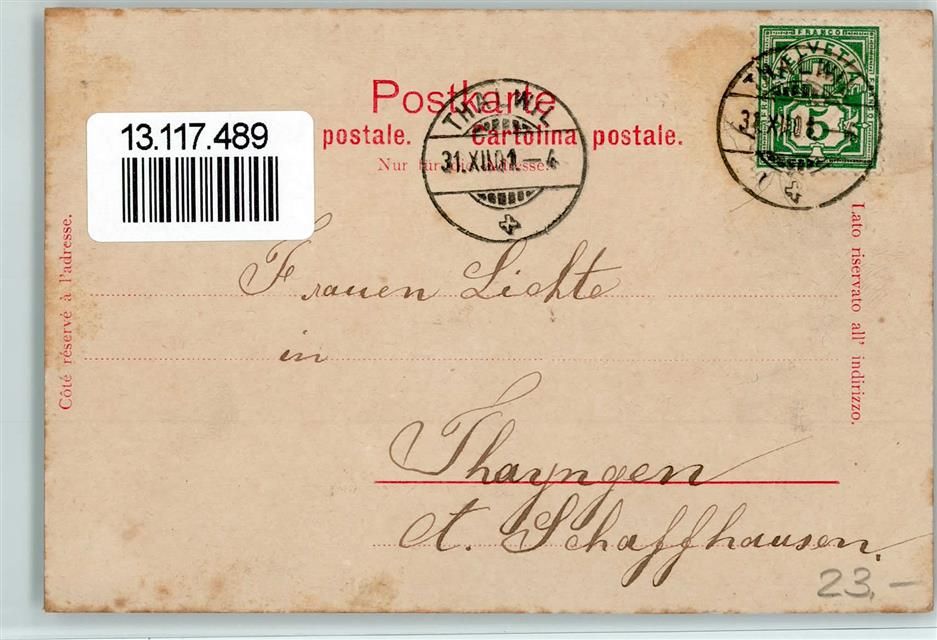 Postkarte
postale. Cartolina postale.
Nur für die Adresse.
13.117.489
THALWIL
31.XII.01-4
FRANCO
HELVETIA
5
31.XII.01
Côté réservé à l'adresse.
Lato riservato all' indirizzo.
Frauen Lichte
in
Thayngen
Ct. Schaffhausen.
23.-